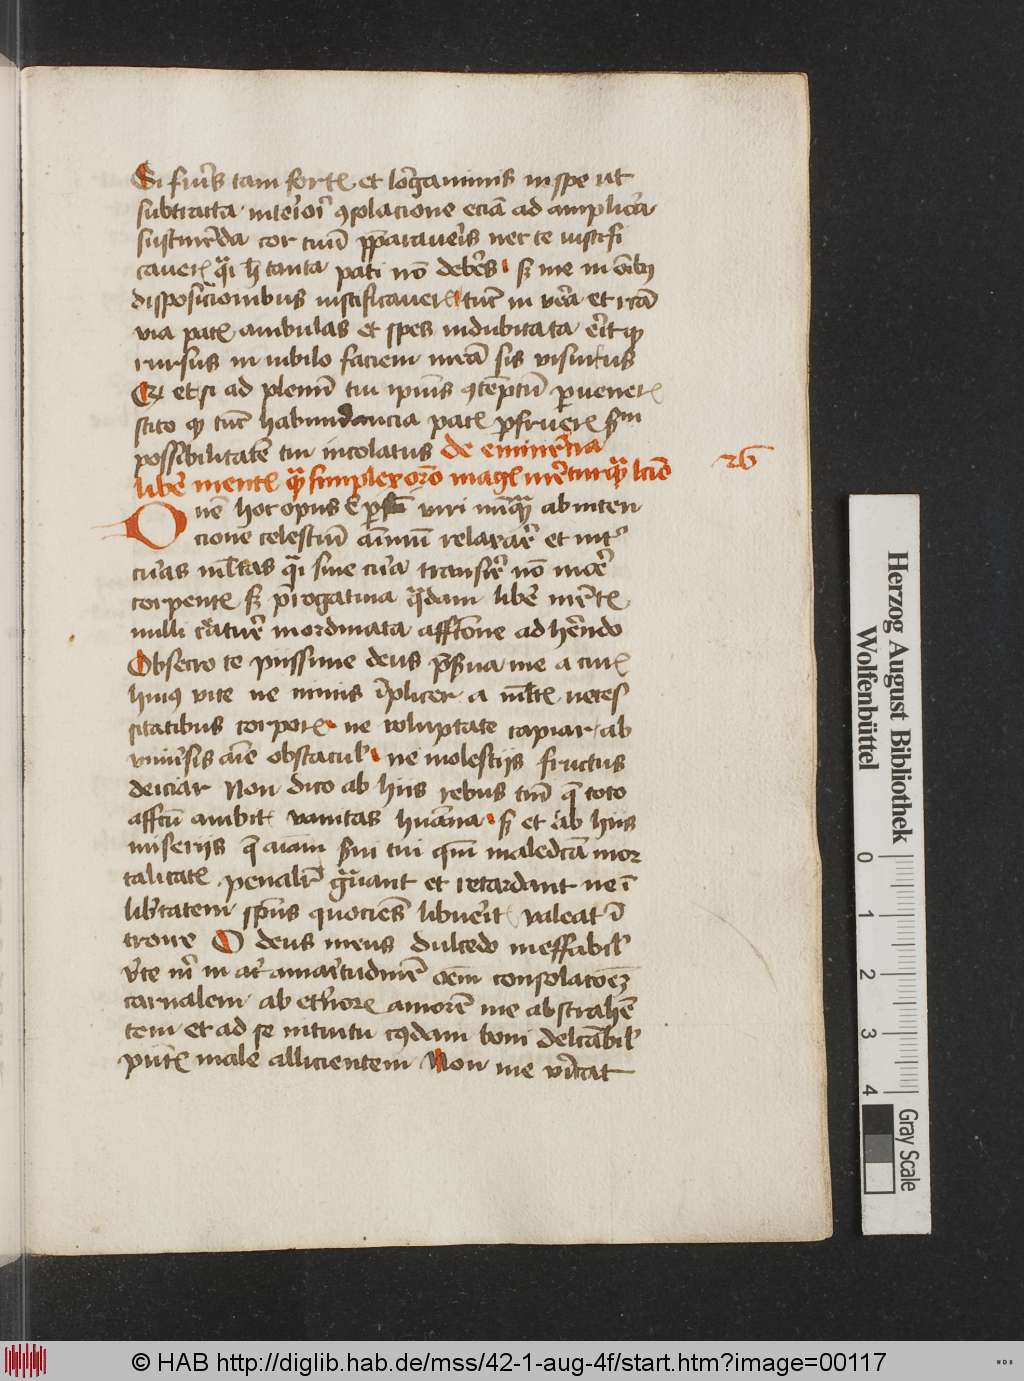 Si fueris tam fortis et longanimis in spe ut
subtracta interiori consolacione eciam ad ampliora
sustinenda cor tuum preparaveris nec te iustifi
caveris quasi hec tanta pati non deberes sed me in omnibus
disposicionibus iustificaveris tunc in vera et recta
via pacis ambulas et spes indubitata erit quod
rursus in iubilo faciem meam sis visurus
Quod et si ad plenum tui ipsius contemptum perveneris
scito quod tunc habundancia pacis perfrueris secundum
possibilitatem tui incolatus de eminencia
libere mentis quam simplex oracio magis meretur quam leccio
26
Domine hoc opus est perfecti viri nunquam ab inten
cione celestium animum relaxare et inter
curas multas quasi sine cura transire non more
torpentis sed prerogativa quadam libere mentis
nulli creature inordinata affectione adherendo
Obsecro te piissime deus preserva me a curis
huius vite ne nimis implicer a multis neces
sitatibus corporis ne voluptate capiar ab
universis anime obstaculis ne molestiis fractus
deiciar Non dico ab hiis rebus tantum que toto
affectu ambit vanitas humana sed et ab hiis
miseriis que animam servi tui communi maledicta mor
talitatis penaliter gravant et retardant ne in
libertatem spiritus quociens libuerit valeat in
troire O deus meus dulcedo ineffabilis
verte mihi in amaritudinem omnem consolacionem
carnalem ab eternorum amore me abstrahen
tem et ad se intuitu cuiusdam boni delectabilis
presentis male allicientem Non me vincat
Herzog August Bibliothek
Wolfenbüttel
0
1
2
3
4
Gray Scale
© HAB http://diglib.hab.de/mss/42-1-aug-4f/start.htm?image=00117